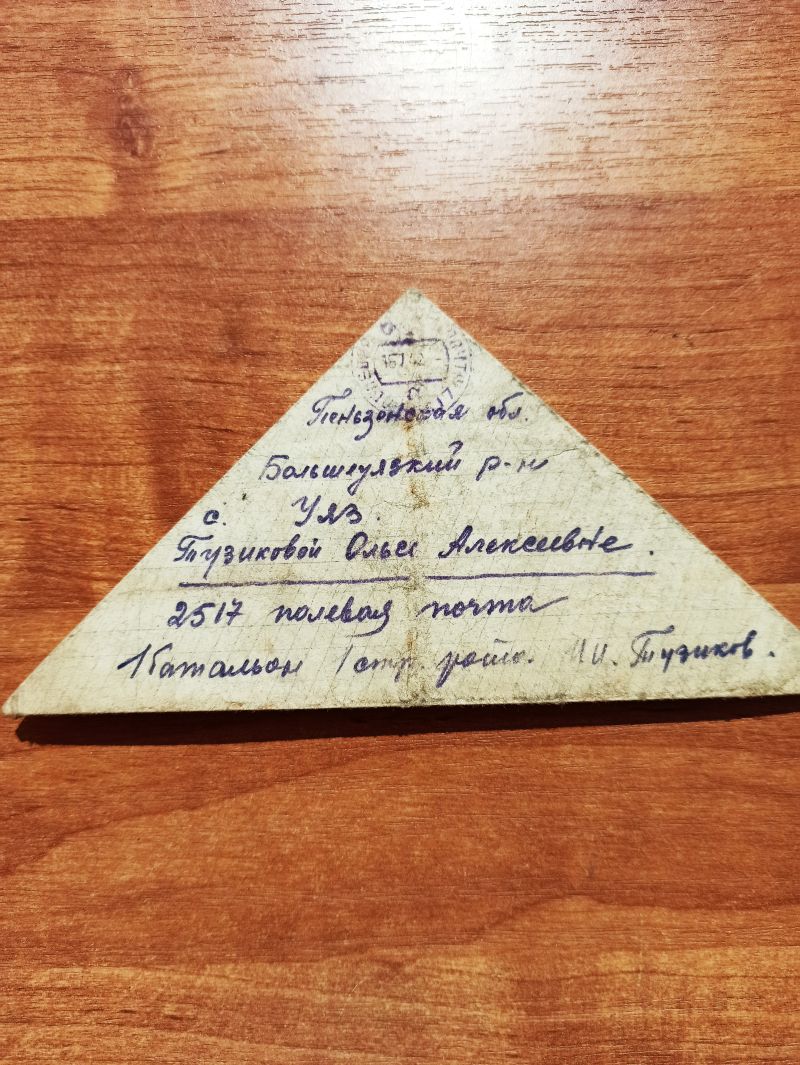 15 7 42
Пеньзенская обл.
Большеуязкий р-н
с. Уяз.
Тузиковой Ольге Алексеевне.
2517 полевая почта
1 батальон 1 стр. рота. И И. Тузиков.